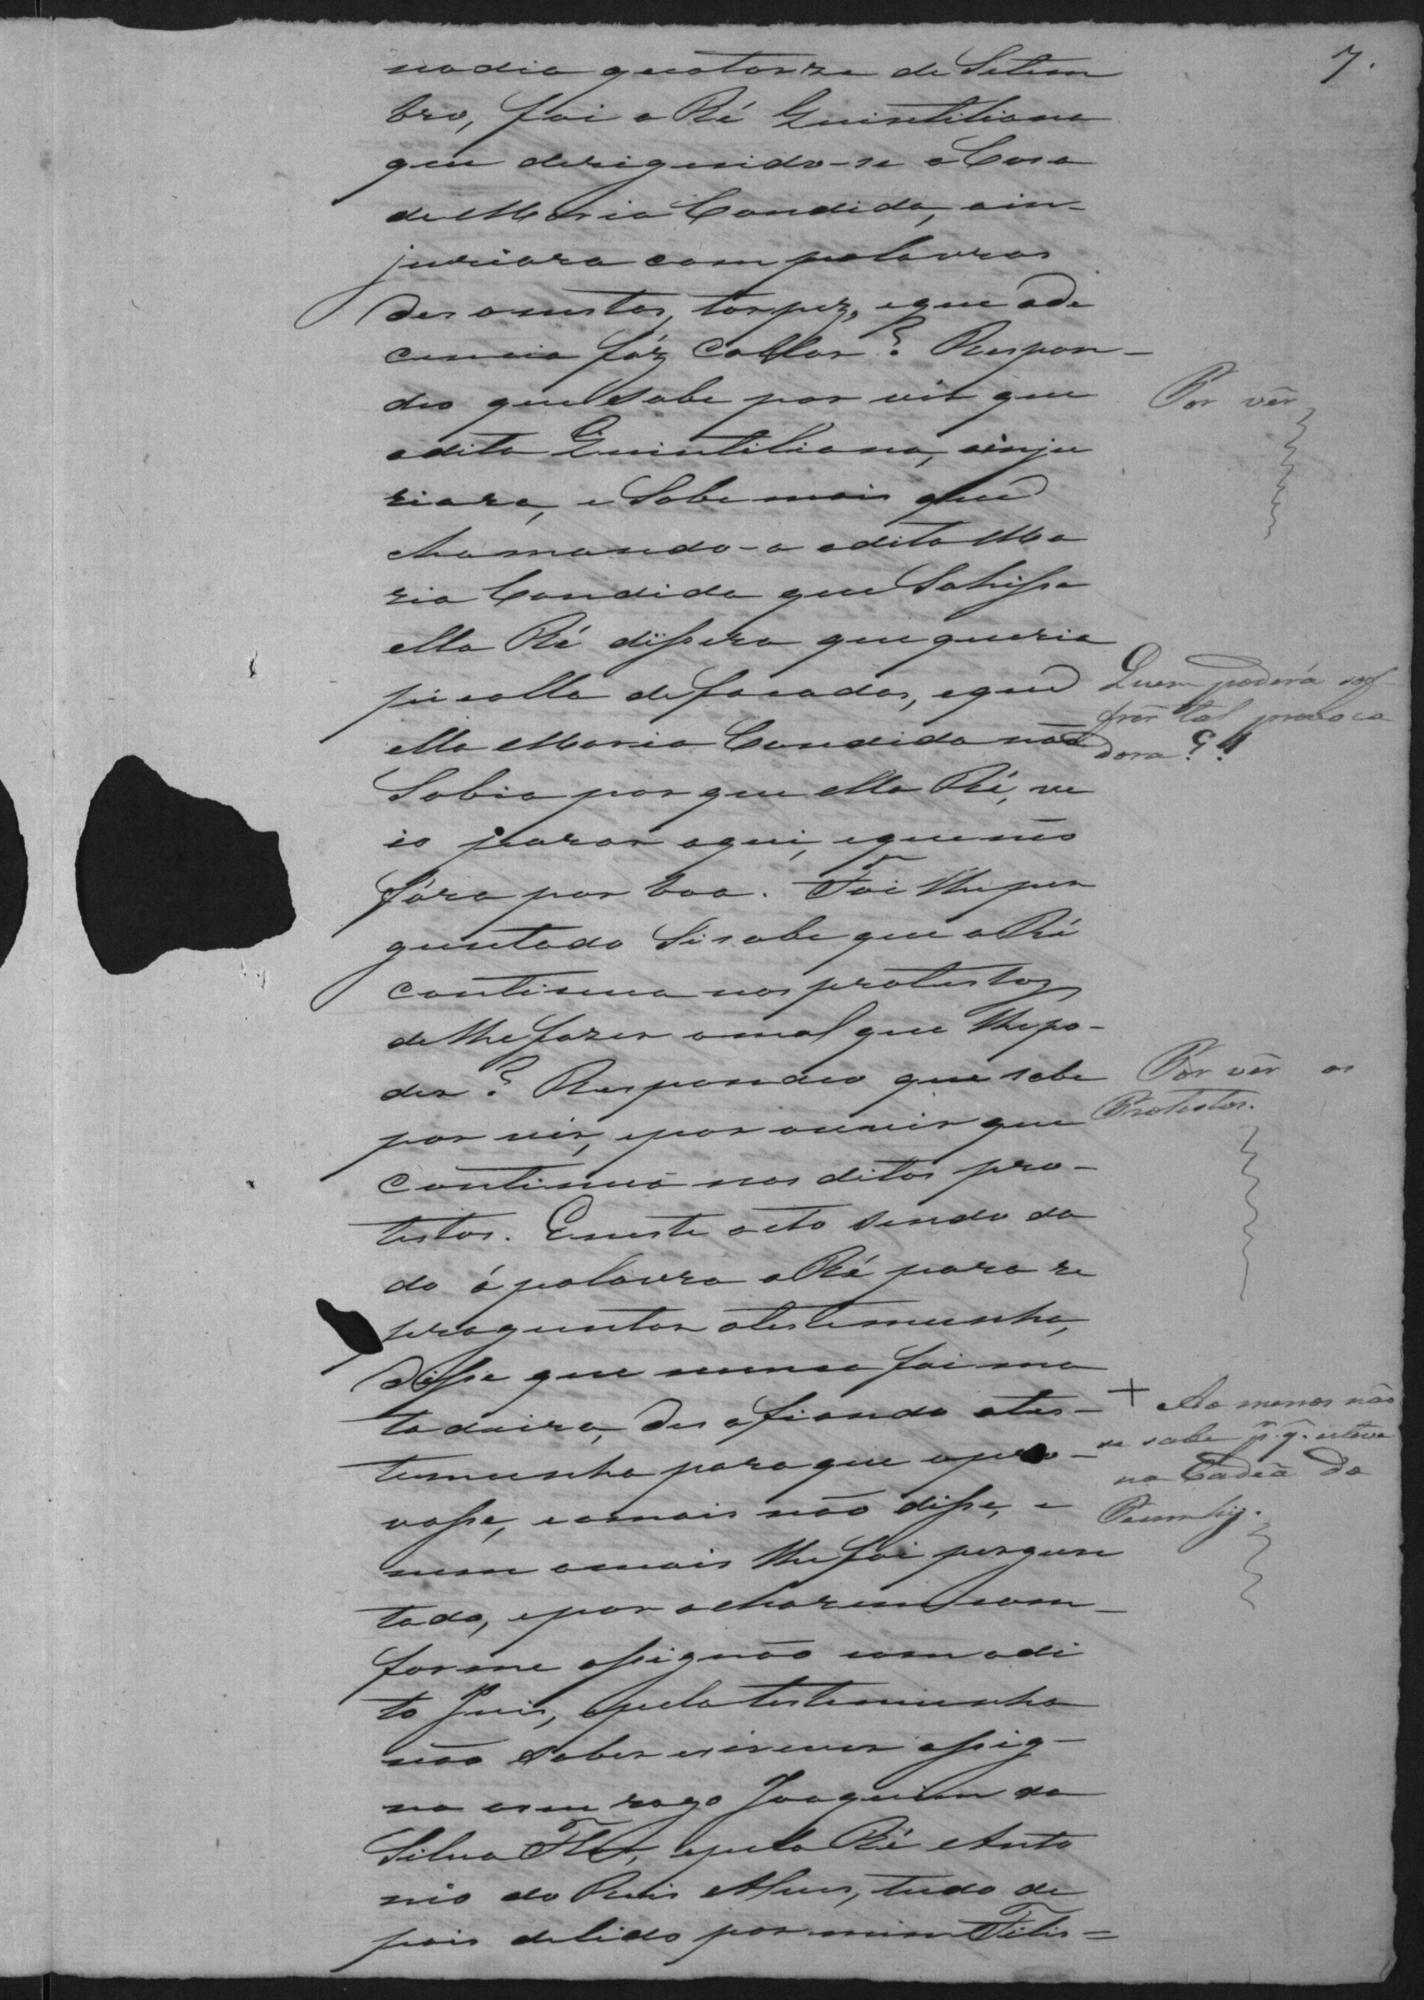 7.
no dia quatorze de Setem
bro, foi a Ré Quintiliana
que dirigindo-se a Casa
de Maria Candida, ain-
juriara com palavras
desonestas, torpez, eque ade
cencia fáz Callar? Respon-
deo que Sabe por vêr que
adita Quintiliana, ainju
riara, e Sabe mais que
chamando-a adita Ma
ria Candida que Sahisse
ella Ré dissera que queria
picalla de facadas, eque
ella Maria Candida não
Sabia por que ella Ré, ve
io parar aqui, eque não
fôra por boa. Foi lhe per
guntado Si sabe que a Ré
continua nos protestos
de lhe fazer omal que lhe po-
der? Respondeo que sabe
por vêr, epor ouvir que
continua nos ditos pro-
testos. E neste acto sendo da
do á palavra a Ré para re
preguntar atestemunha,
disse que nunca foi ma
tadeira, desafiando ates-
temunha para que apro-
vasse, eamais não disse, e
nem amais lhe foi pergun
tado, epor acharem com-
forme assignão com odi
to Juis, epela testemunha
não Saber escrever assig-
na aseu rogo Joaquim da
Silva Flôr, epela Ré Anto
nio do Reis Alves, tudo de
pois de lido por mim Felis=
Por vêr
Quem poderá sof
frêr tal provoca
dora?!
Por vêr os
Protestos.
+ Ao menos não
se sabe p.r q. esteve
na Cadêa do